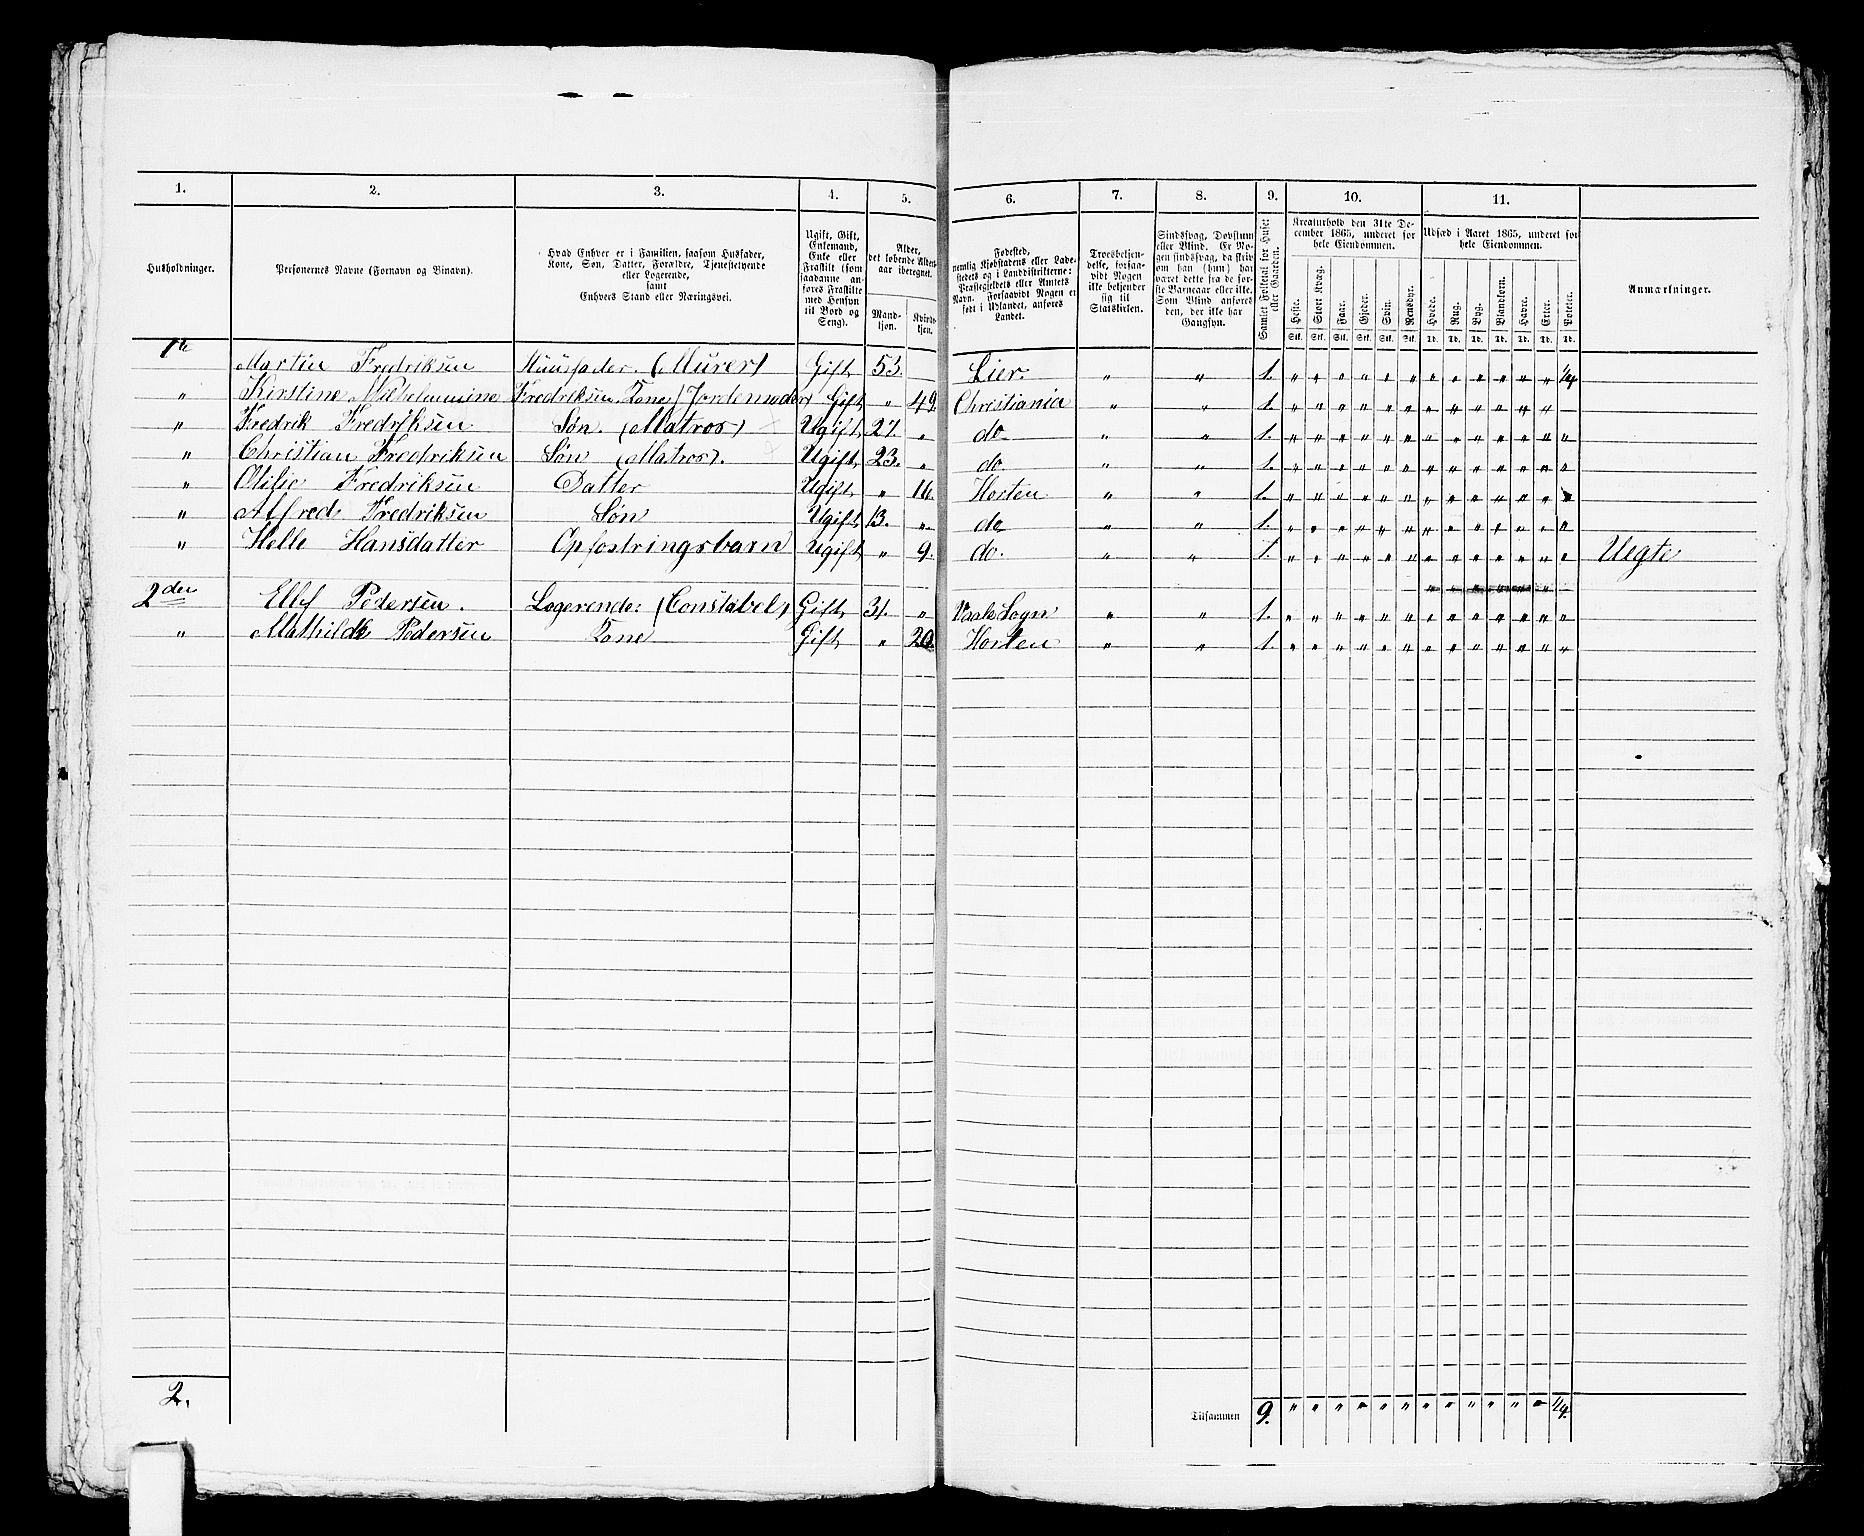 1. 2. 3. 4. 5. 6. 7. 8. 9. 10. 11.
Husholdninger.
Personernes Navne (Fornavn og Binavn).
Hvad Enhver er i Familien, saasom Husfader,
Kone, Søn, Datter, Forældre, Tjenestetyende
eller Logerende,
samt
Enhvers Stand eller Næringsvei.
Ugift, Gift,
Enkemand,
Enke eller
Fraskilt (som
saadanne an-
føres Fraskilte
med Hensyn
til Bord og
Seng).
Alder,
det løbende Alders-
aar iberegnet.
Mand-
kjøn.
Kvinde-
kjøn.
Fødested,
nemlig Kjøbstadens eller Lade-
stedets og i Landdistrikterne:
Præstegjeldets eller Amtets
Navn. Forsaavidt Nogen er
født i Udlandet, anføres
Landet.
Troesbekjen-
delse, forsaa-
vidt Nogen
ikke bekjender
sig til
Statskirken.
Sindssvag, Døvstum
eller Blind. Er No-
gen sindssvag, da skriv
om han (hun) har
været dette fra de før-
ste Barneaar eller ikke.
Som Blind anføres
den, der ikke har
Gangsyn.
Samlet Folketal for Huset
eller Gaarden.
Kreaturhold den 31te De-
cember 1865, underet for
hele Eiendommen.
Heste. Stort Kvæg. Faar. Gjeder. Svin. Rensdyr.
Stk. Stk. Stk. Stk. Stk. Stk.
Udsæd i Aaret 1865, underet for
hele Eiendommen.
Hvede. Rug. Byg. Blandkorn. Havre. Erter. Poteter.
Td. Td. Td. Td. Td. Td. Td.
Anmærkninger.
1te
Martin Fredriksen Huusfader. (Murer) Gift 53. Lier. " " 1. " " " " " " " " " " " " 1/4
" Kirstine Vilhelmmine Fredriksen. Kone (Jordemoder) Gift " 49. Christiania " " 1. " " " " " " " " " " " "
" Fredrik Fredriksen Søn. (Matros) Ugift 27. " do " " 1. " " " " " " " " " " " " "
" Christian Fredriksen Søn (Matros). Ugift 23. " do " " 1. " " " " " " " " " " " " "
" Olifie Fredriksen Datter Ugift " 16. Horten " " 1. " " " " " " " " " " " " "
" Alfred Fredriksen Søn Ugift 13. " do " " 1. " " " " " " " " " " " " "
" Helle Hansdatter Opfostringsbarn Ugift " 9. do. " " 1. " " " " " " " " " " " " " Uegte
2den Ellef Pedersen. Logerende: (Constabel) Gift 31. " Vaale Sogn " " 1. " " " " " " " " " " " " "
" Mathilde Pedersen Kone Gift " 20. Horten " " 1. " " " " " " " " " " " " "
2.
Tilsammen 9. " " " " " " " " " " " " 1/4.